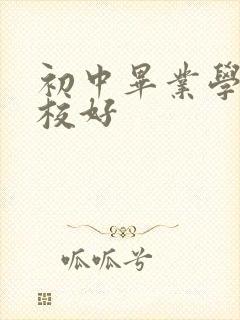 初中畢業學
校好
呱呱兮